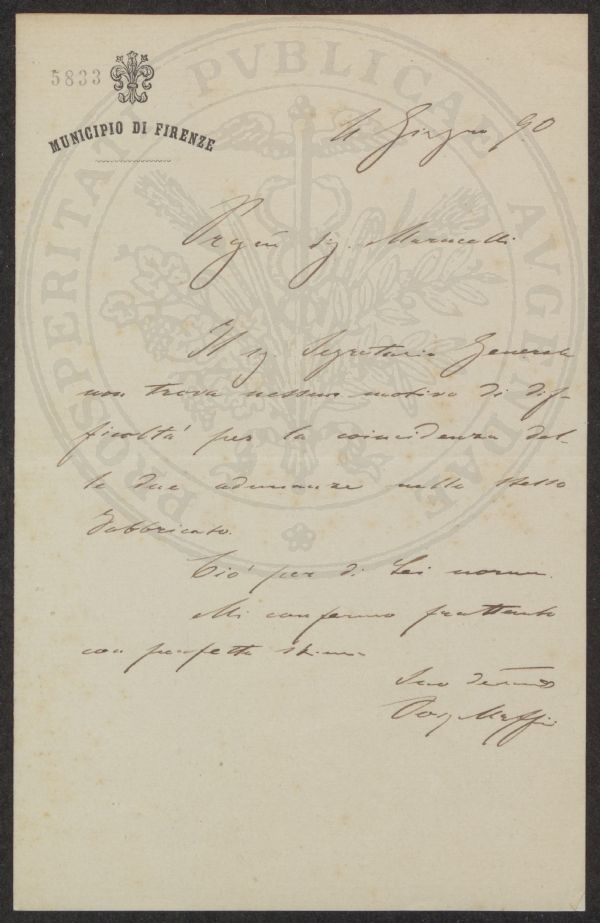 5833
MUNICIPIO DI FIRENZE
PROSPERITATI PVBLICAE AVGENDAE
4 Giugno 90
Sig. Marucelli
Il sig Segretario Generale
non trova nessun motivo di dif-
ficoltà per la coincidenza del-
le due adunanze nello stesso
Fabbricato.
Ciò per di Lei norma.
Mi confermo frattanto
con perfetta stima
Suo
Maffii